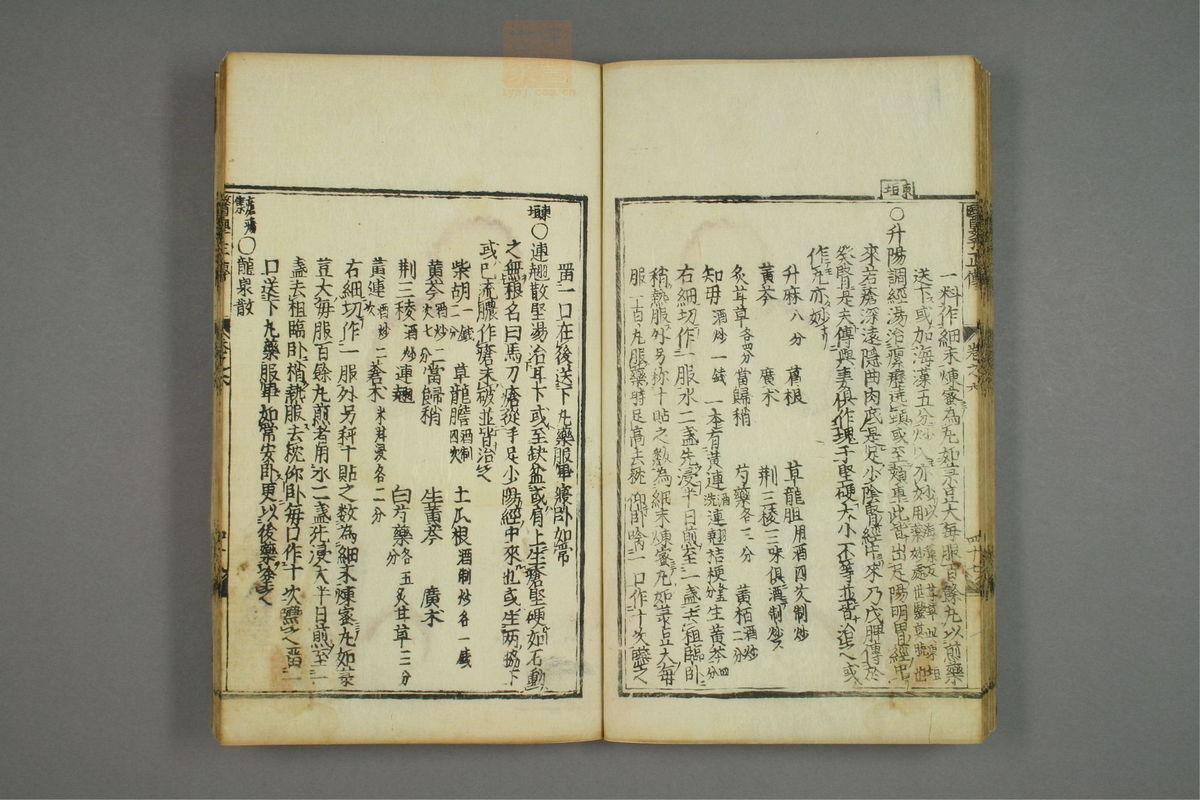 醫學正傳
卷之六
一料作細末煉蜜為丸如菉豆大每服百餘丸以煎藥
送下或加海藻五分炒
東垣
○升陽調經湯治瘰癧遶頸或至頰車此皆出足陽明胃經中
來若瘡深遠隱曲肉底是足少陰腎經中來乃戊脾傳於
癸腎是夫傳與妻俱作塊子堅硬大小不等並皆治之或
作先亦妙
升麻八分 葛根 草龍胆用酒四次制炒
黃芩 廣朮 荆三稜三味俱酒制炒
炙甘草各四分當歸稍 芍藥各三分 黃栢酒炒二分
知母酒炒一錢 一本有黃連酒洗連翹桔梗生黃芩四分
右細切作一服水二盞先浸半日煎至一盞去粗臨卧
稍熱服外另称十貼之数為細末煉蜜丸如菉豆大每
服一百丸服藥時足高去枕仰卧噙一口作十次嚥之
畱一口在後送下丸藥服畢寢卧如常
東垣
○連翹散堅湯治耳下或至缺盆或肩上生瘡堅硬如石動
之無根名曰馬刀瘡從手足少陽經中來也或生两脇下
或已流膿作瘡未破並皆治之
柴胡一錢二分 草龍膽酒制四次 土瓜根酒制炒各一錢
黃芩酒炒二次七分當歸稍 生黃芩 廣朮
荆三稜酒炒連翹 白芍藥各五分炙甘草三分
黃連酒炒二次蒼朮米泔浸各二分
右細切作一服外另秤十貼之数為細末煉蜜丸如菉
荳大每服百餘丸煎者用水二盞先浸大半日煎至一
盞去粗臨卧稍熱服去枕仰卧每口作十次嚥之畱一
口送下丸藥服畢如常安卧更以後藥塗之
○龍泉散
醫學正傳